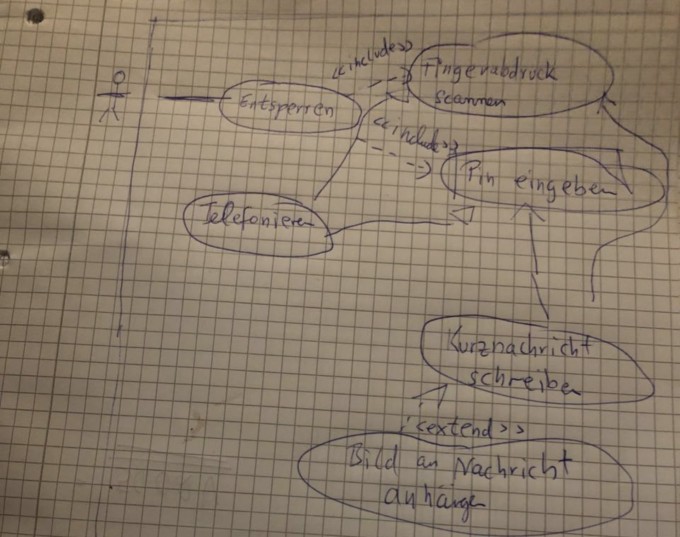 <<include>>
Fingerabdruck
scannen
Entsperren
<<include>>
Pin eingeben
Telefonieren
Kurznachricht
schreiben
<<extend>>
Bild an Nachricht
anhängen